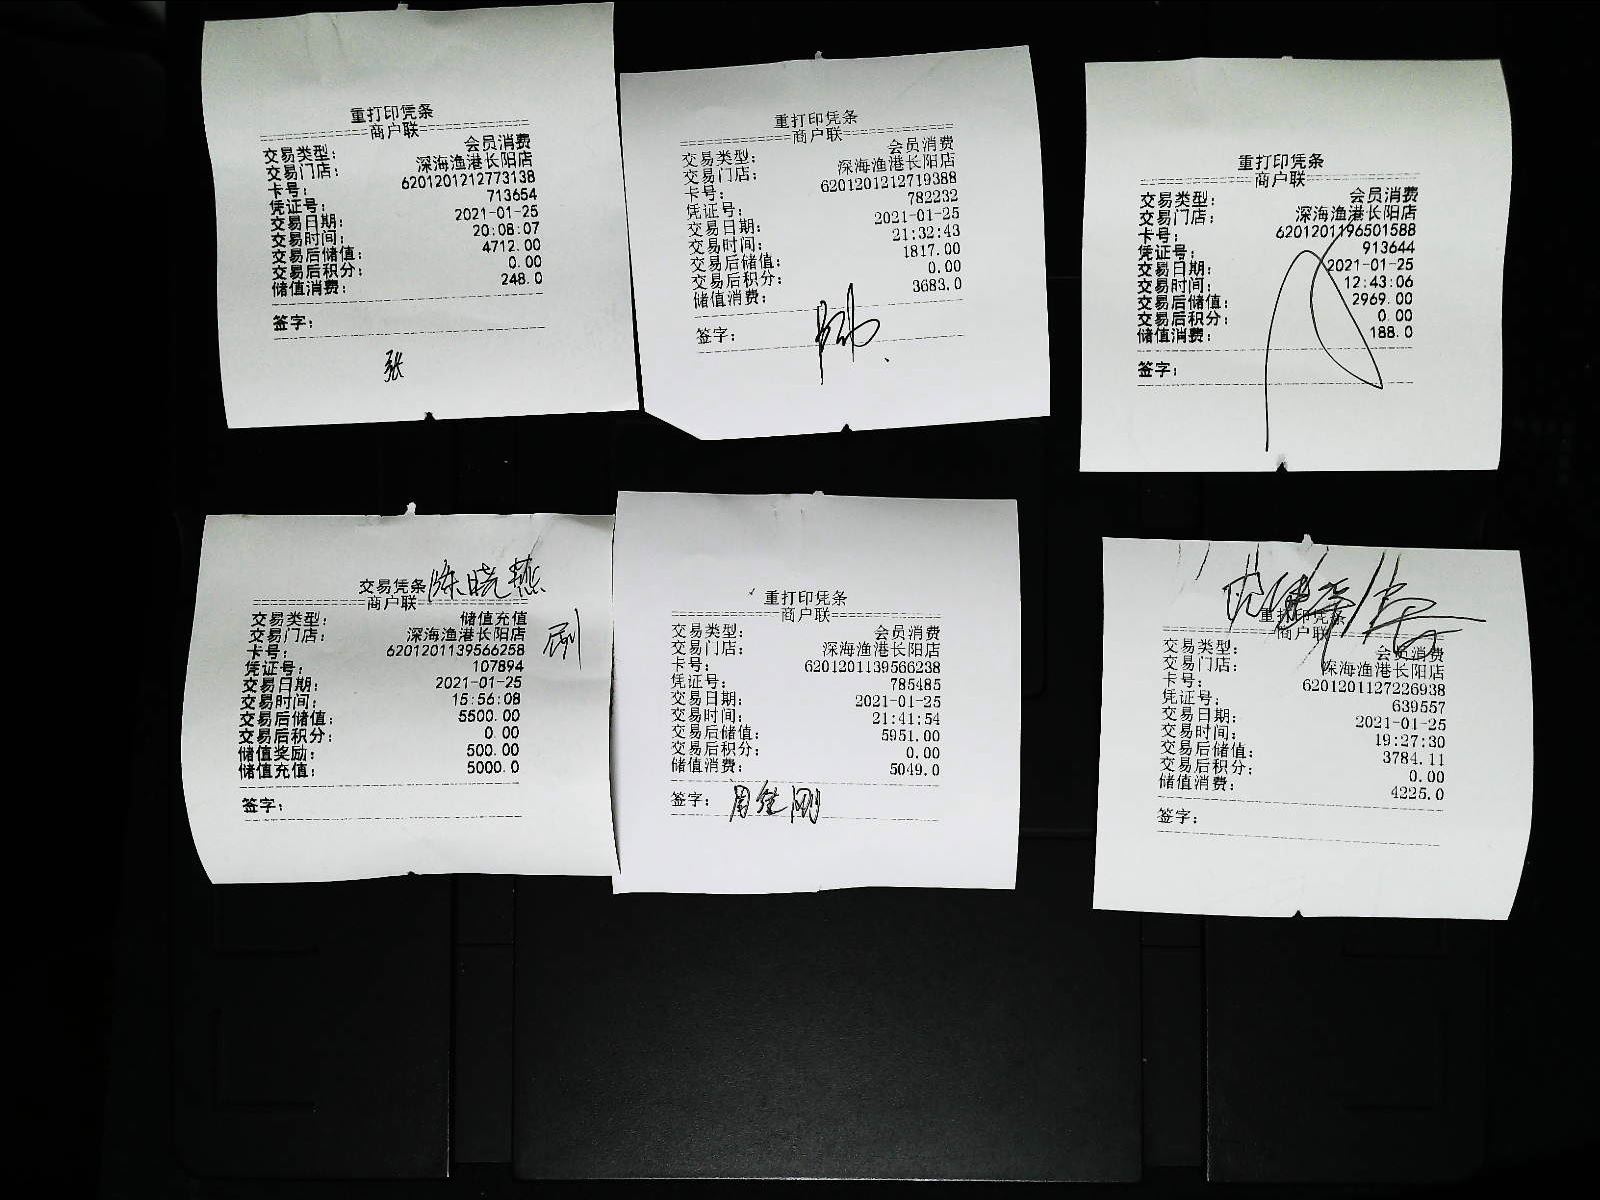 重打印凭条
商户联
交易类型： 会员消费
交易门店： 深海渔港长阳店
卡号： 6201201212773138
凭证号： 713654
交易日期： 2021-01-25
交易时间： 20:08:07
交易后储值： 4712.00
交易后积分： 0.00
储值消费： 248.0
签字：
张
重打印凭条
商户联
交易类型： 会员消费
交易门店： 深海渔港长阳店
卡号： 6201201212719388
凭证号： 782232
交易日期： 2021-01-25
交易时间： 21:32:43
交易后储值： 1817.00
交易后积分： 0.00
储值消费： 3683.0
签字：
重打印凭条
商户联
交易类型： 会员消费
交易门店： 深海渔港长阳店
卡号： 6201201196501588
凭证号： 913644
交易日期： 2021-01-25
交易时间： 12:43:06
交易后储值： 2969.00
交易后积分： 0.00
储值消费： 188.0
签字：
交易凭条 陈晓燕
商户联
交易类型： 储值充值
交易门店： 深海渔港长阳店
卡号： 6201201139566258
凭证号： 107894
交易日期： 2021-01-25
交易时间： 15:56:08
交易后储值： 5500.00
交易后积分： 0.00
储值奖励： 500.00
储值充值： 5000.0
签字：
刷
重打印凭条
商户联
交易类型： 会员消费
交易门店： 深海渔港长阳店
卡号： 6201201139566238
凭证号： 785485
交易日期： 2021-01-25
交易时间： 21:41:54
交易后储值： 5951.00
交易后积分： 0.00
储值消费： 5049.0
签字：
重打印凭条
商户联
交易类型： 会员消费
交易门店： 深海渔港长阳店
卡号： 6201201127226938
凭证号： 639557
交易日期： 2021-01-25
交易时间： 19:27:30
交易后储值： 3784.11
交易后积分： 0.00
储值消费： 4225.0
签字：